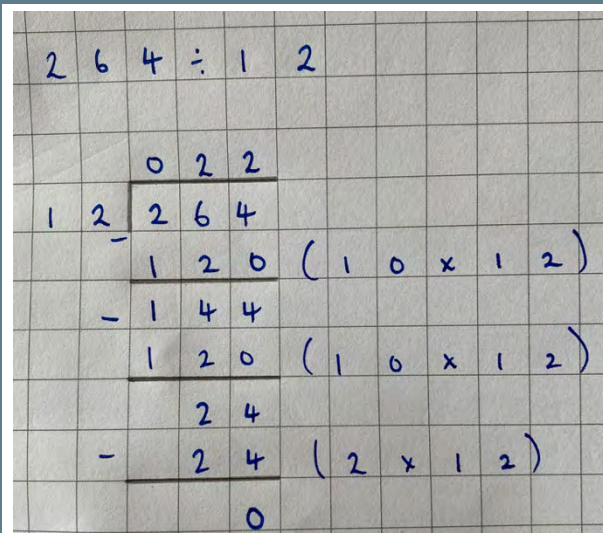 264÷12
022
12 264
- 120 (10×12)
- 144
120 (10×12)
24
- 24 (2×12)
0